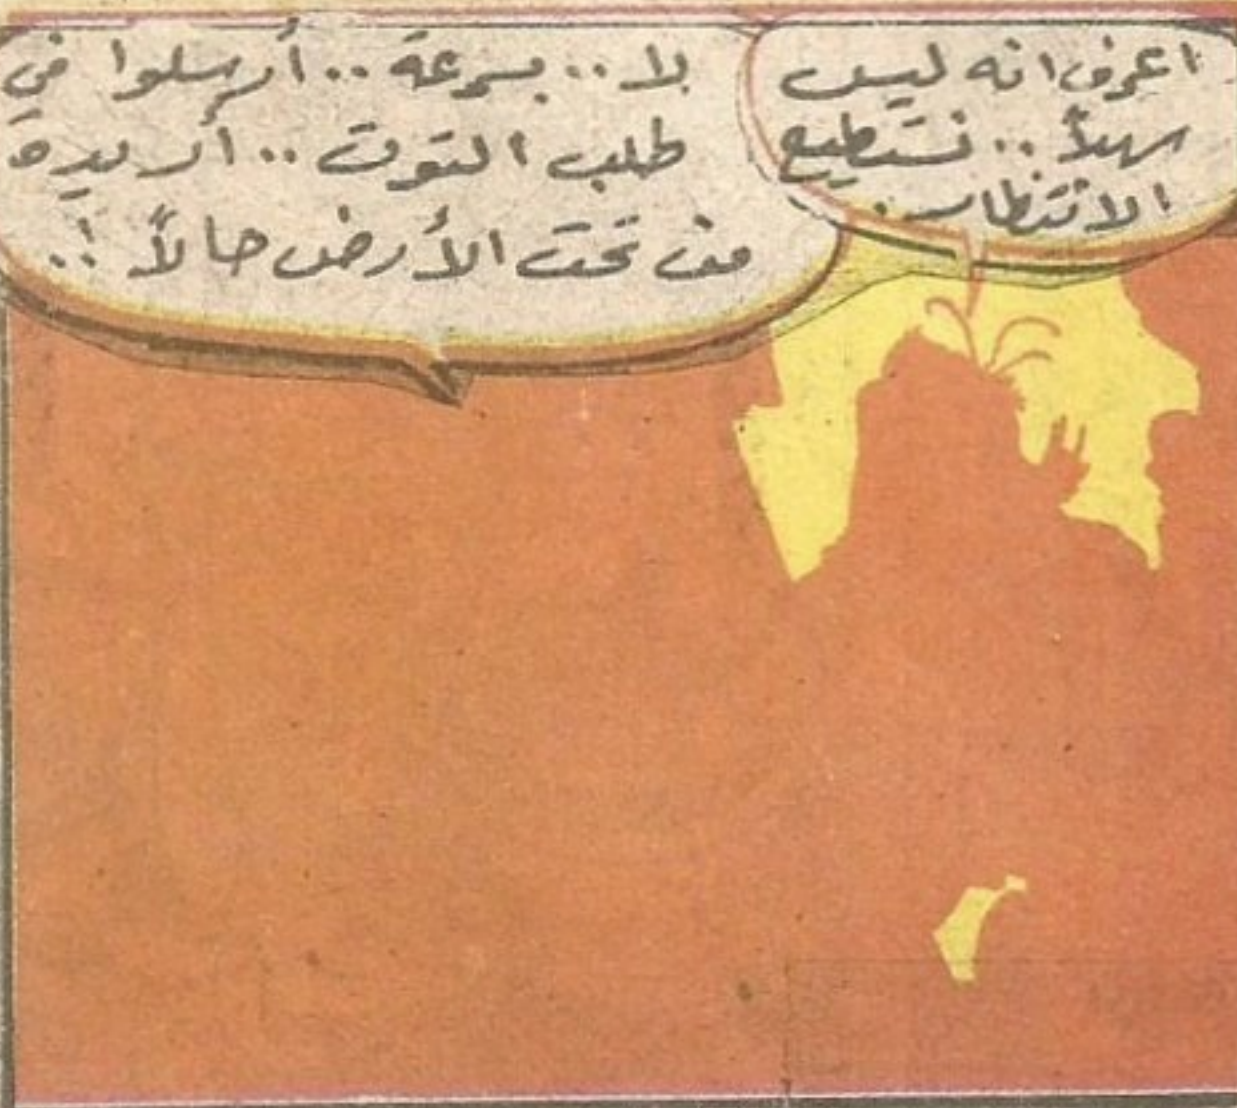 اعرف انه ليس
سهلاً .. نستطيع
الانتظار .
لا .. بسرعة .. أرسلوا في
طلب التوت .. أريده
من تحت الأرض حالاً !..